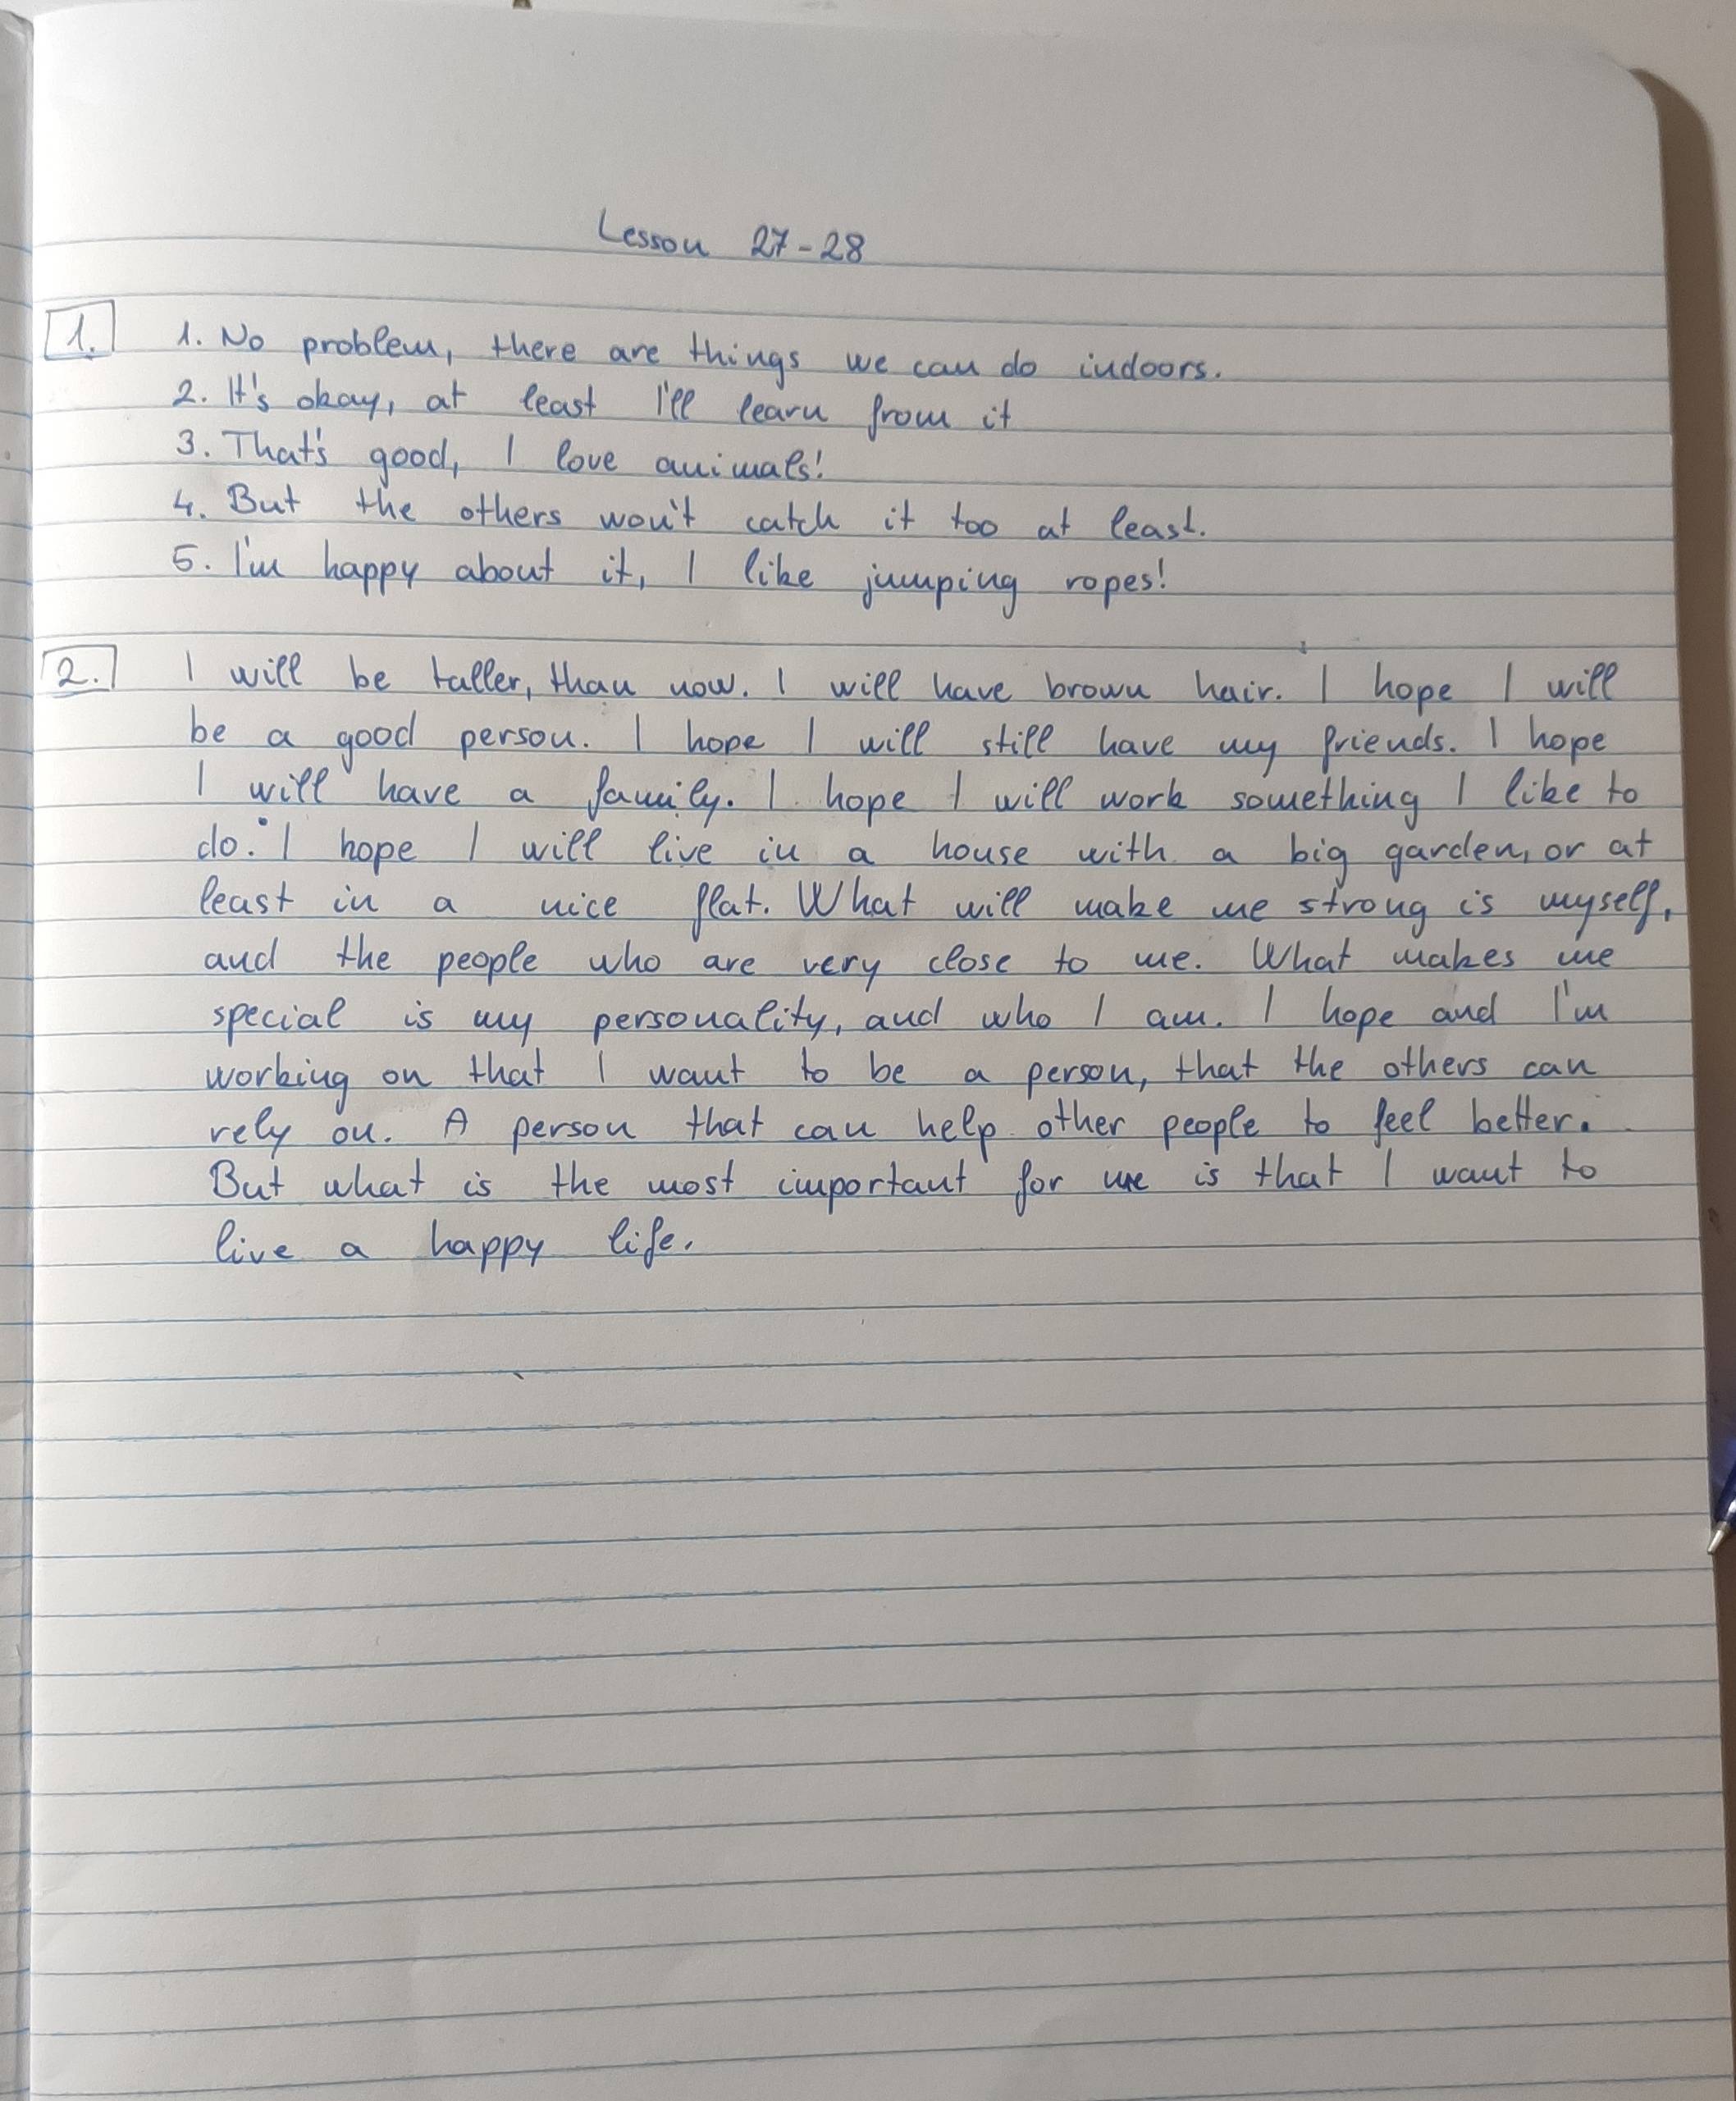 Lesson 27-28
1. 1. No problem, there are things we can do indoors.
2. It's okay, at least I'll learn from it
3. That's good, I love animals!
4. But the others won't catch it too at least.
5. I'm happy about it, I like jumping ropes!
2. I will be taller, than now. I will have brown hair. I hope I will
be a good person. I hope I will still have my friends. I hope
I will have a family. I hope I will work something I like to
do. I hope I will live in a house with a big garden, or at
least in a nice flat. What will make me strong is myself,
and the people who are very close to me. What makes me
special is my personality, and who I am. I hope and I'm
working on that I want to be a person, that the others can
rely on. A person that can help other people to feel better.
But what is the most important for me is that I want to
live a happy life.